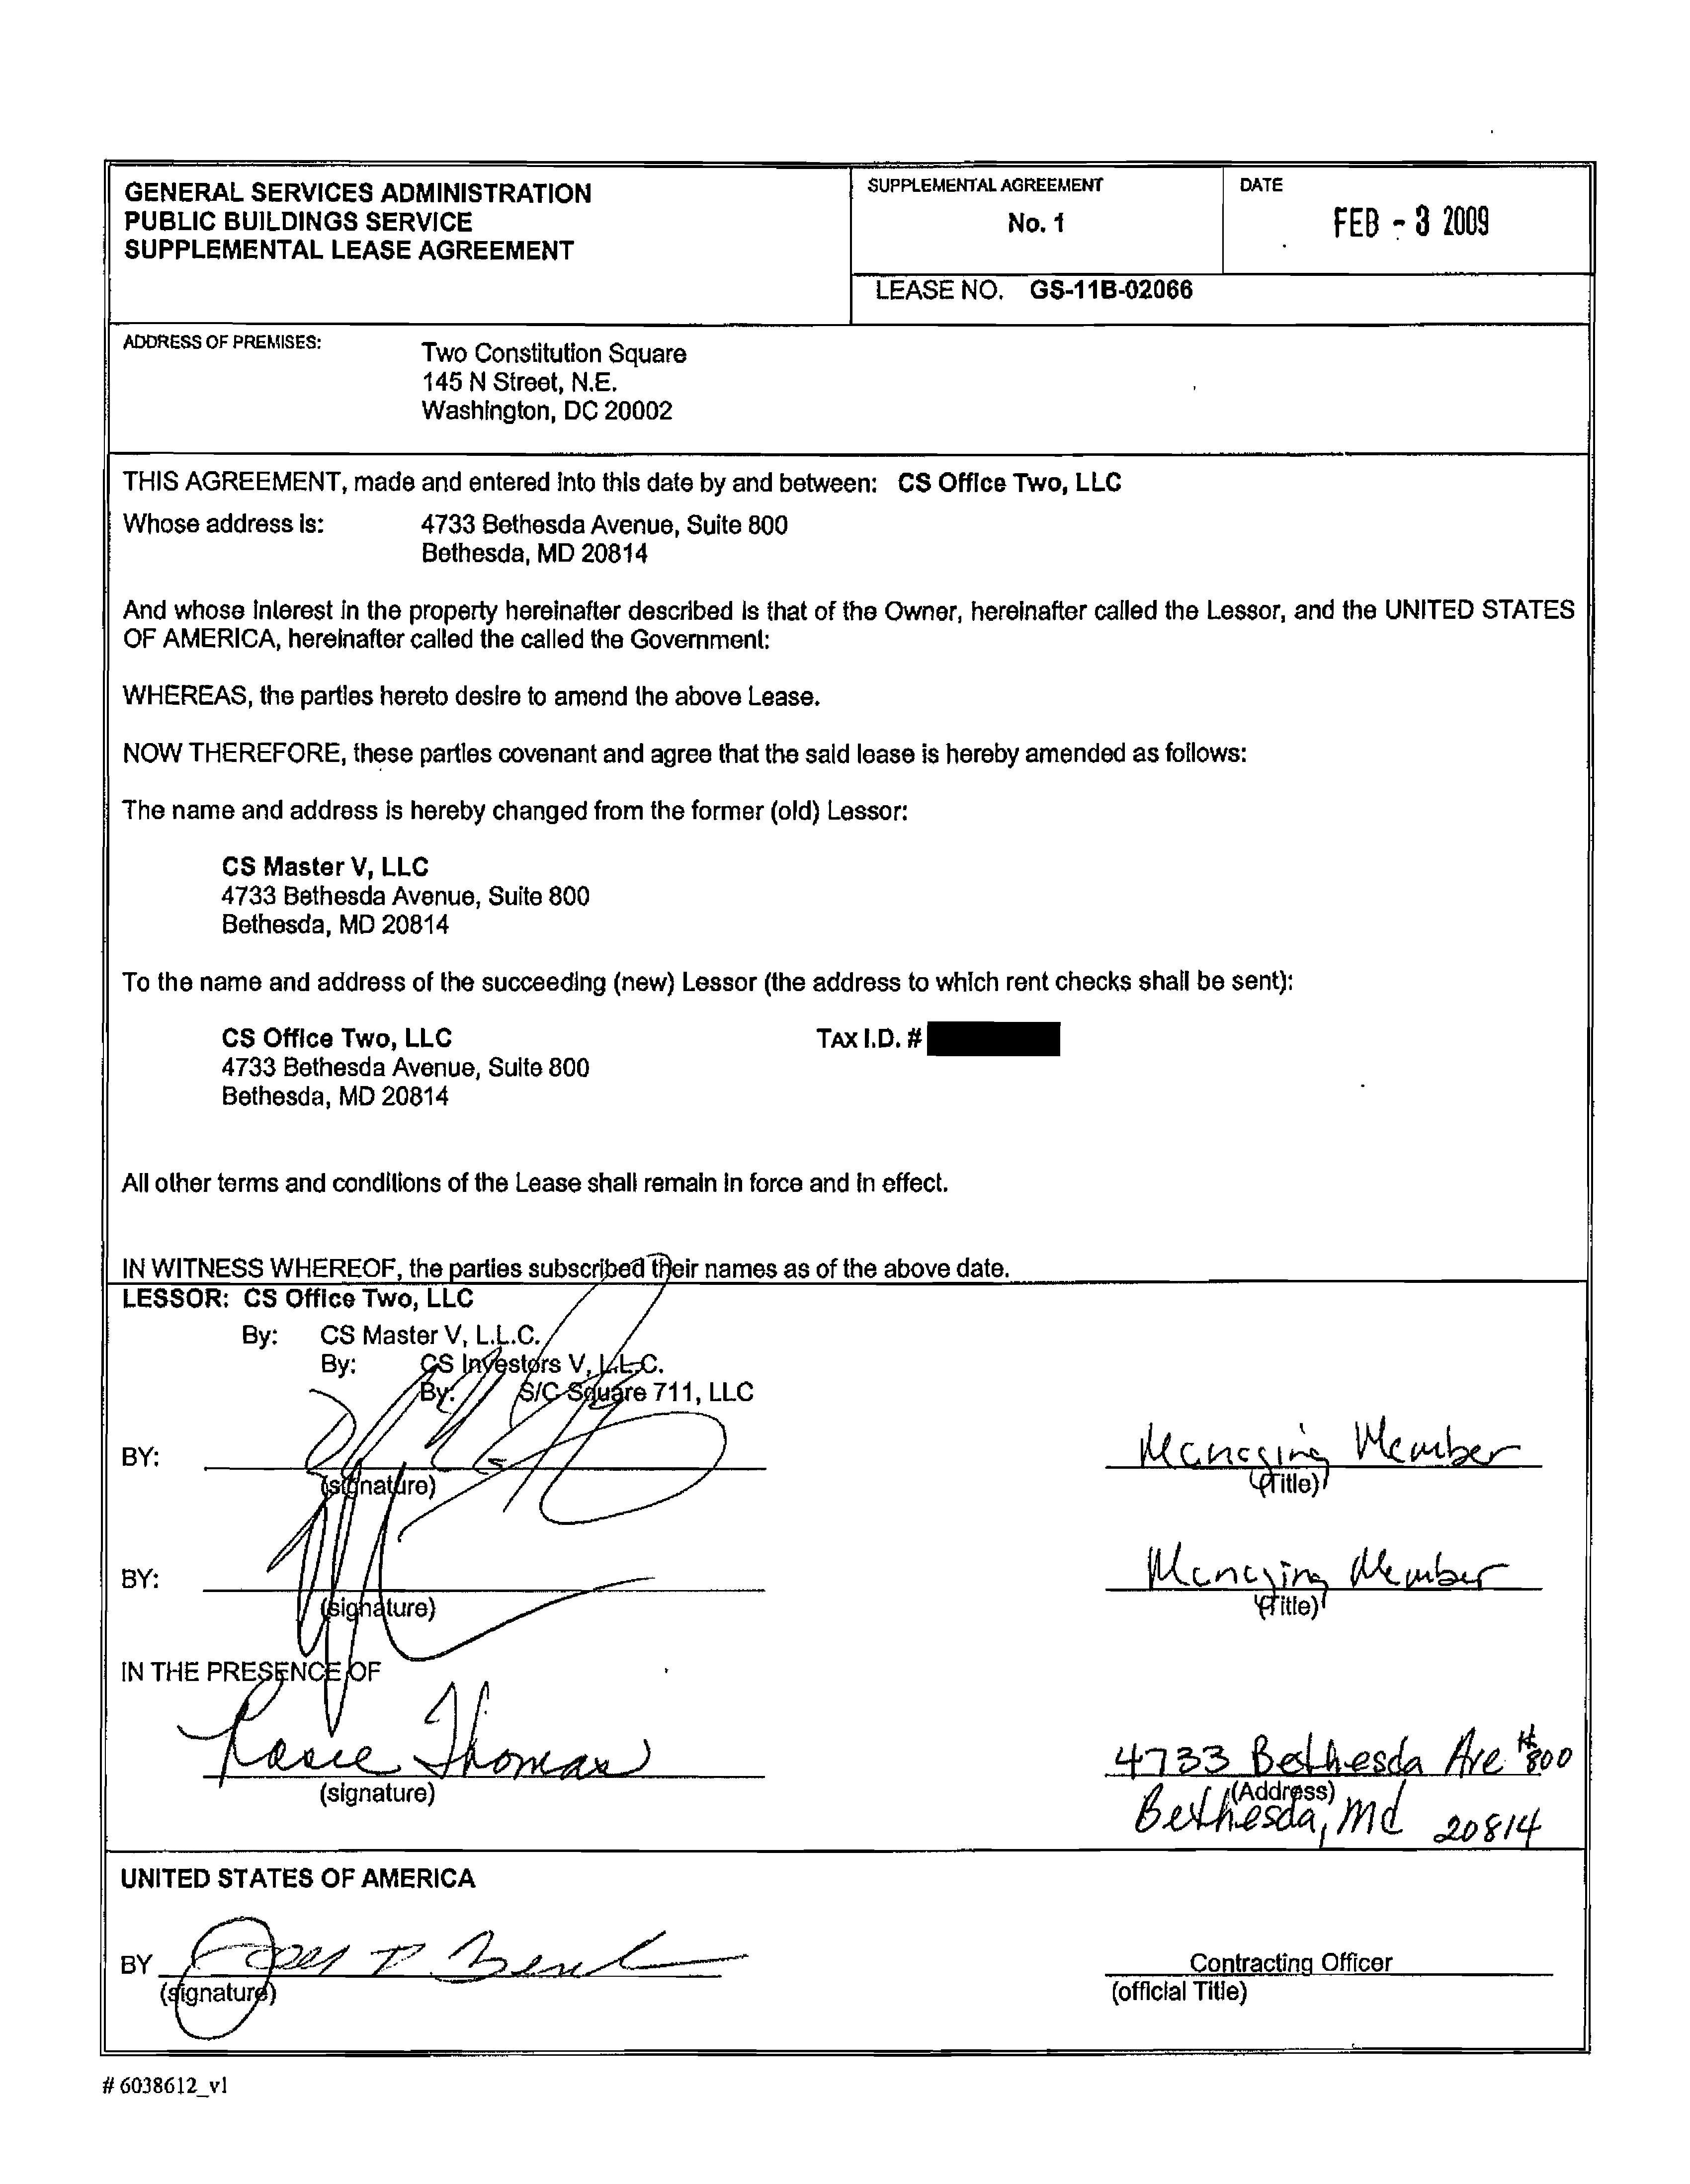 GENERAL SERVICES ADMINISTRATION
PUBLIC BUILDINGS SERVICE
SUPPLEMENTAL LEASE AGREEMENT
SUPPLEMENTAL AGREEMENT
No. 1
DATE
FEB - 3 2009
LEASE NO. GS-11B-02066
ADDRESS OF PREMISES:
Two Constitution Square
145 N Street, N.E.
Washington, DC 20002
THIS AGREEMENT, made and entered into this date by and between: CS Office Two, LLC
Whose address is: 4733 Bethesda Avenue, Suite 800
Bethesda, MD 20814
And whose interest in the property hereinafter described is that of the Owner, hereinafter called the Lessor, and the UNITED STATES
OF AMERICA, hereinafter called the called the Government:
WHEREAS, the parties hereto desire to amend the above Lease.
NOW THEREFORE, these parties covenant and agree that the said lease is hereby amended as follows:
The name and address is hereby changed from the former (old) Lessor:
CS Master V, LLC
4733 Bethesda Avenue, Suite 800
Bethesda, MD 20814
To the name and address of the succeeding (new) Lessor (the address to which rent checks shall be sent):
CS Office Two, LLC TAX I.D. #
4733 Bethesda Avenue, Suite 800
Bethesda, MD 20814
All other terms and conditions of the Lease shall remain in force and in effect.
IN WITNESS WHEREOF, the parties subscribed their names as of the above date.
LESSOR: CS Office Two, LLC
By: CS Master V, L.L.C.
By: CS Investors V, L.L.C.
By: S/C Square 711, LLC
BY: Managing Member
(signature) (Title)
BY: Managing Member
(signature) (Title)
IN THE PRESENCE OF
Thomas 4733 Bethesda Ave #800
(signature) (Address)
Bethesda, Md 20814
UNITED STATES OF AMERICA
BY Contracting Officer
(signature) (official Title)
# 6038612_v1